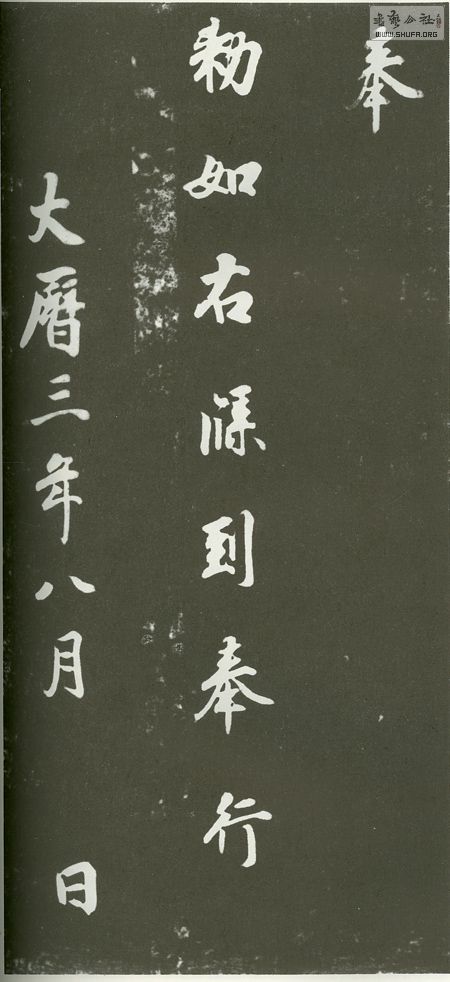 奉
勑如右牒到奉行
大曆三年八月 日
書藝公社
WWW.SHUFA.ORG